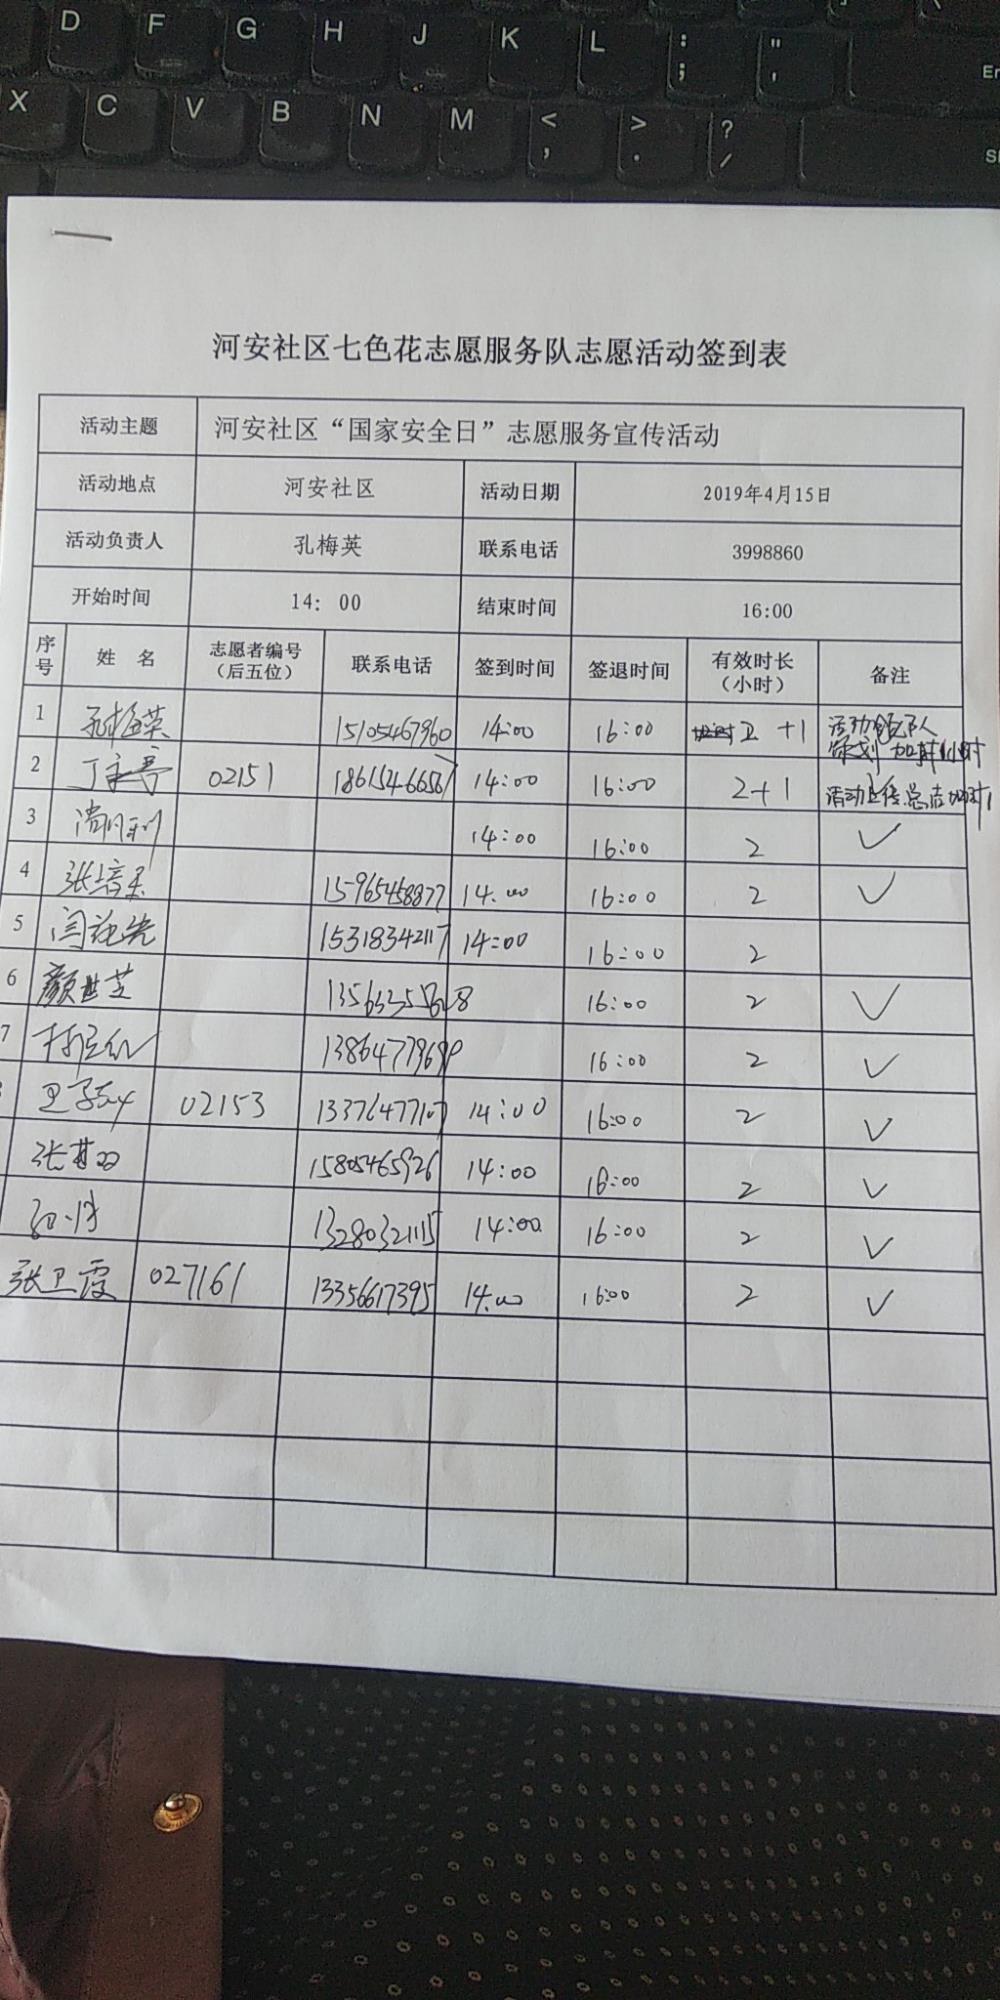 D F G H J K L : ; " '
X C V B N M < , > . ? /
河安社区七色花志愿服务队志愿活动签到表
活动主题 河安社区“国家安全日”志愿服务宣传活动
活动地点 河安社区 活动日期 2019年4月15日
活动负责人 孔梅英 联系电话 3998860
开始时间 14: 00 结束时间 16:00
序号 姓 名 志愿者编号（后五位） 联系电话 签到时间 签退时间 有效时长（小时） 备注
1 孔梅英 15105467960 14:00 16:00 +1 活动领队
2 02151 14:00 16:00 2+1
3 14:00 16:00 2 ✓
4 15965458877 14:00 16:00 2 ✓
5 15318342117 14:00 16:00 2
6 颜世芝 16:00 2 ✓
7 16:00 2 ✓
02153 13376477107 14:00 16:00 2 ✓
15805465926 14:00 16:00 2 ✓
13280321115 14:00 16:00 2 ✓
张卫霞 027161 13356617395 14:00 16:00 2 ✓